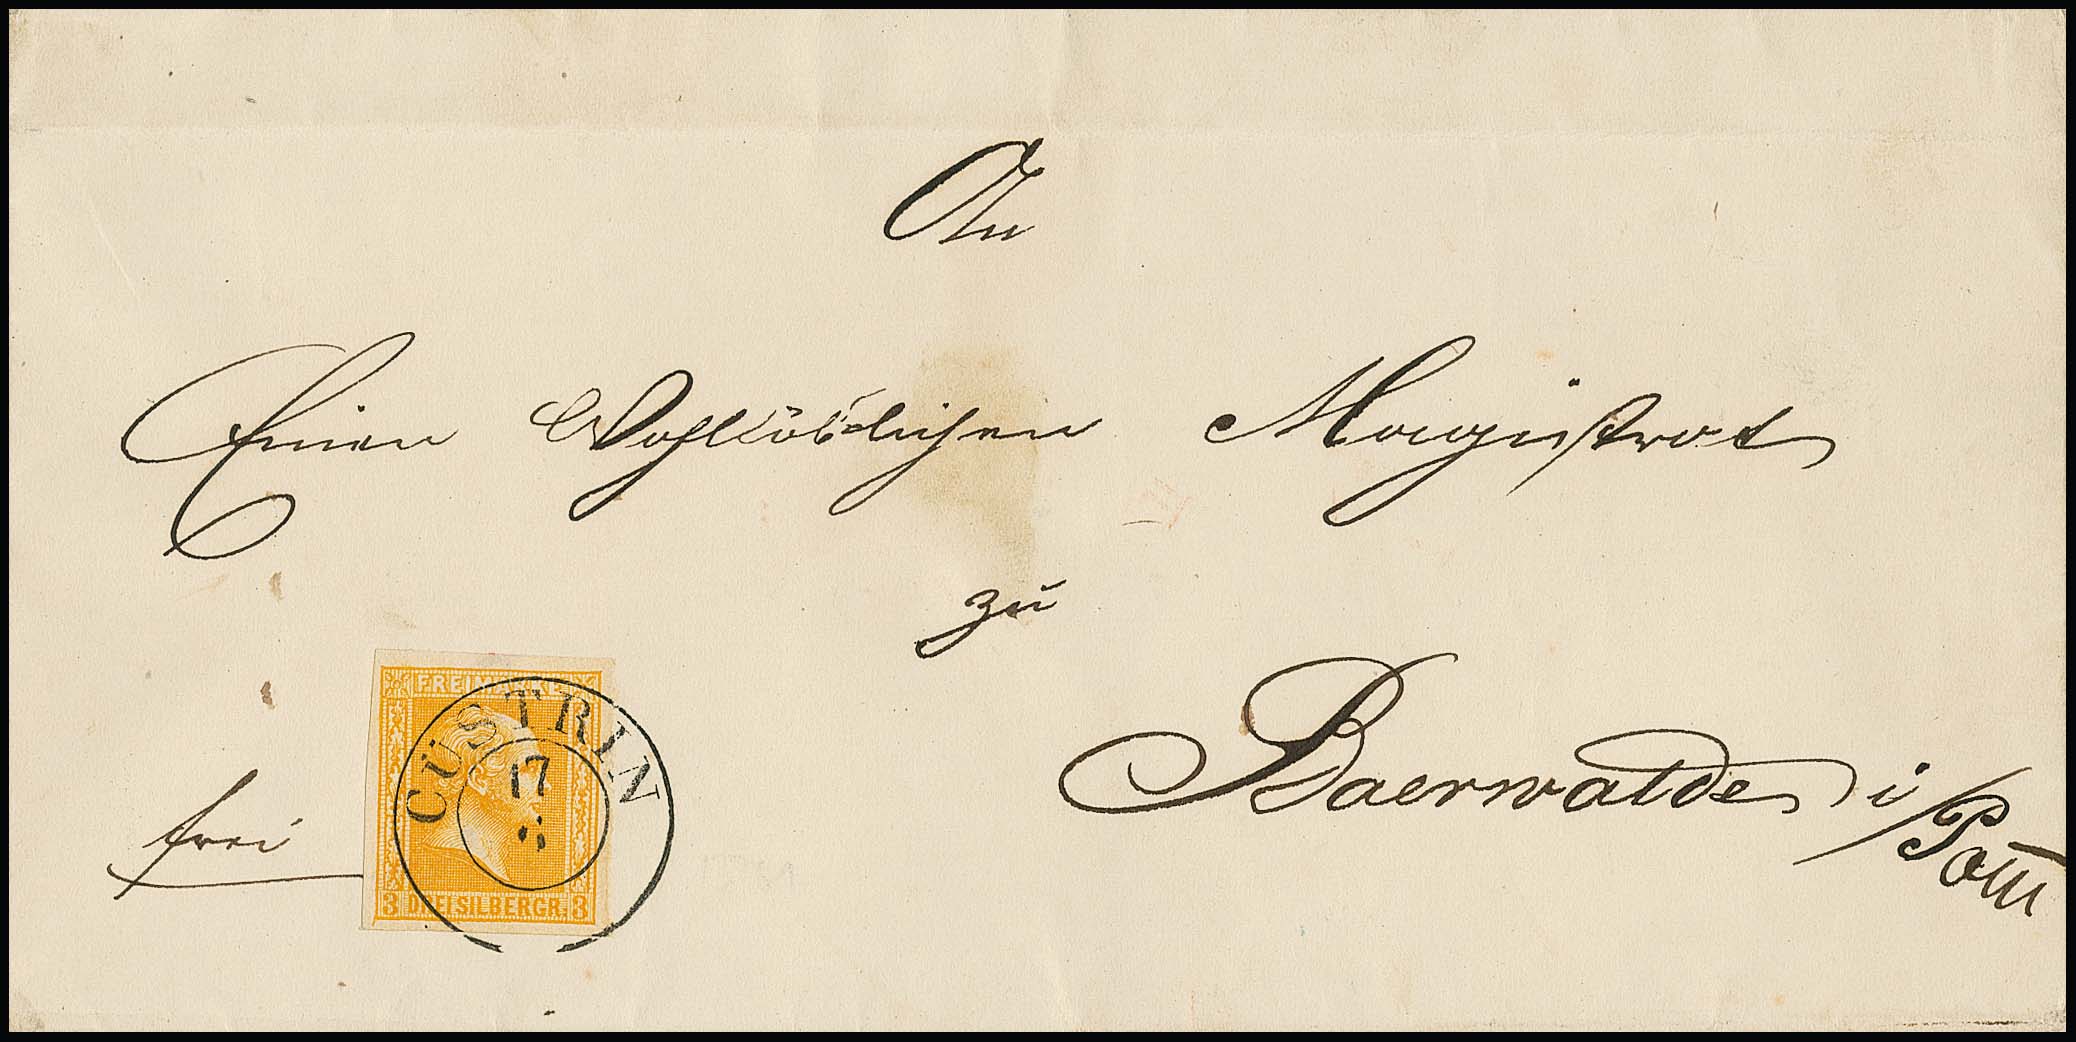 An
Einen Wohllöblichen Magistrat
zu
Baerwalde i/Pom
frei
FREIMARKE
3 DREI SILBERGR. 3
CÜSTRIN
17